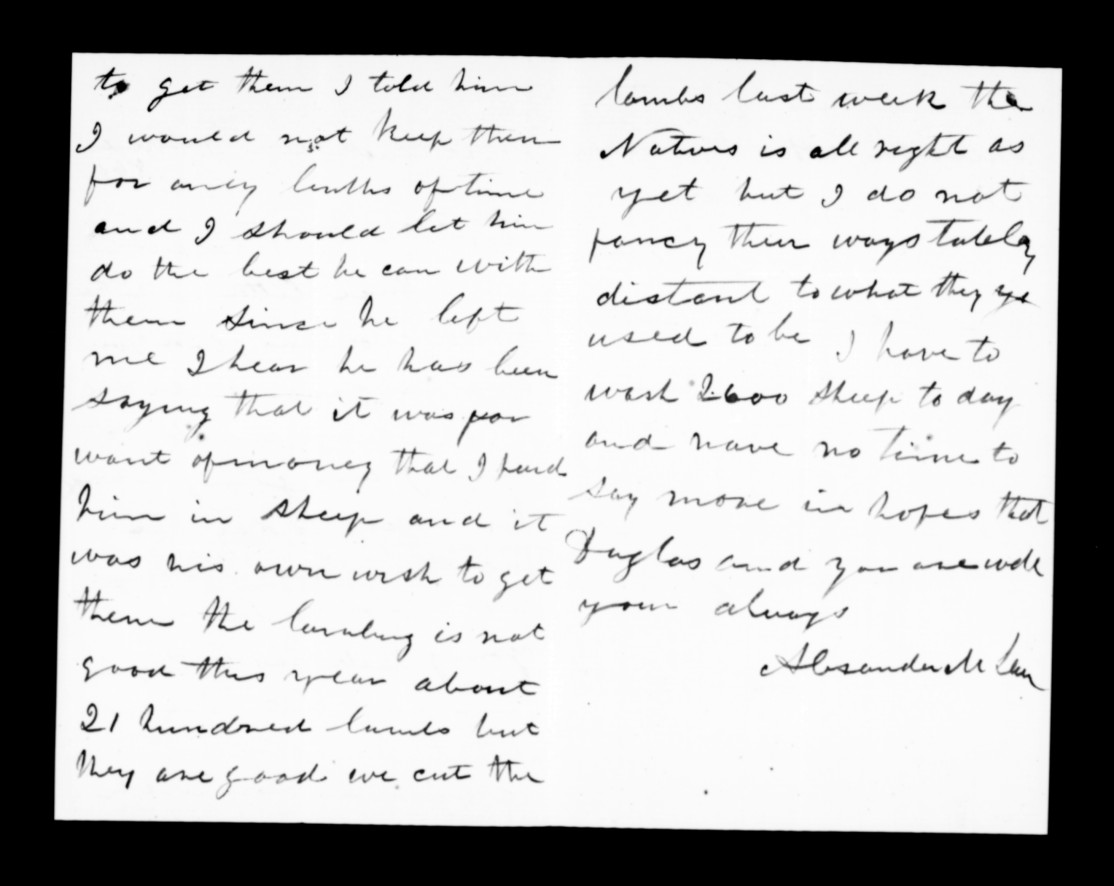 to get them I told him
I would not keep them
for aney lenths of time
and I should let him
do the best he can with
them since he left
me I hear he has been
saying that it was for
want of money that I paid
him in sheep and it
was his own wish to get
them the lambing is not
good this year about
21 hundred lambs but
they are good we cut the
lambs last week the
Natives is all right as
yet but I do not
fancy their ways
distant to what they
used to be I have to
wash 2600 sheep to day
and have no time to
say more in hopes that
Duglas and you are well
your always
Alexander